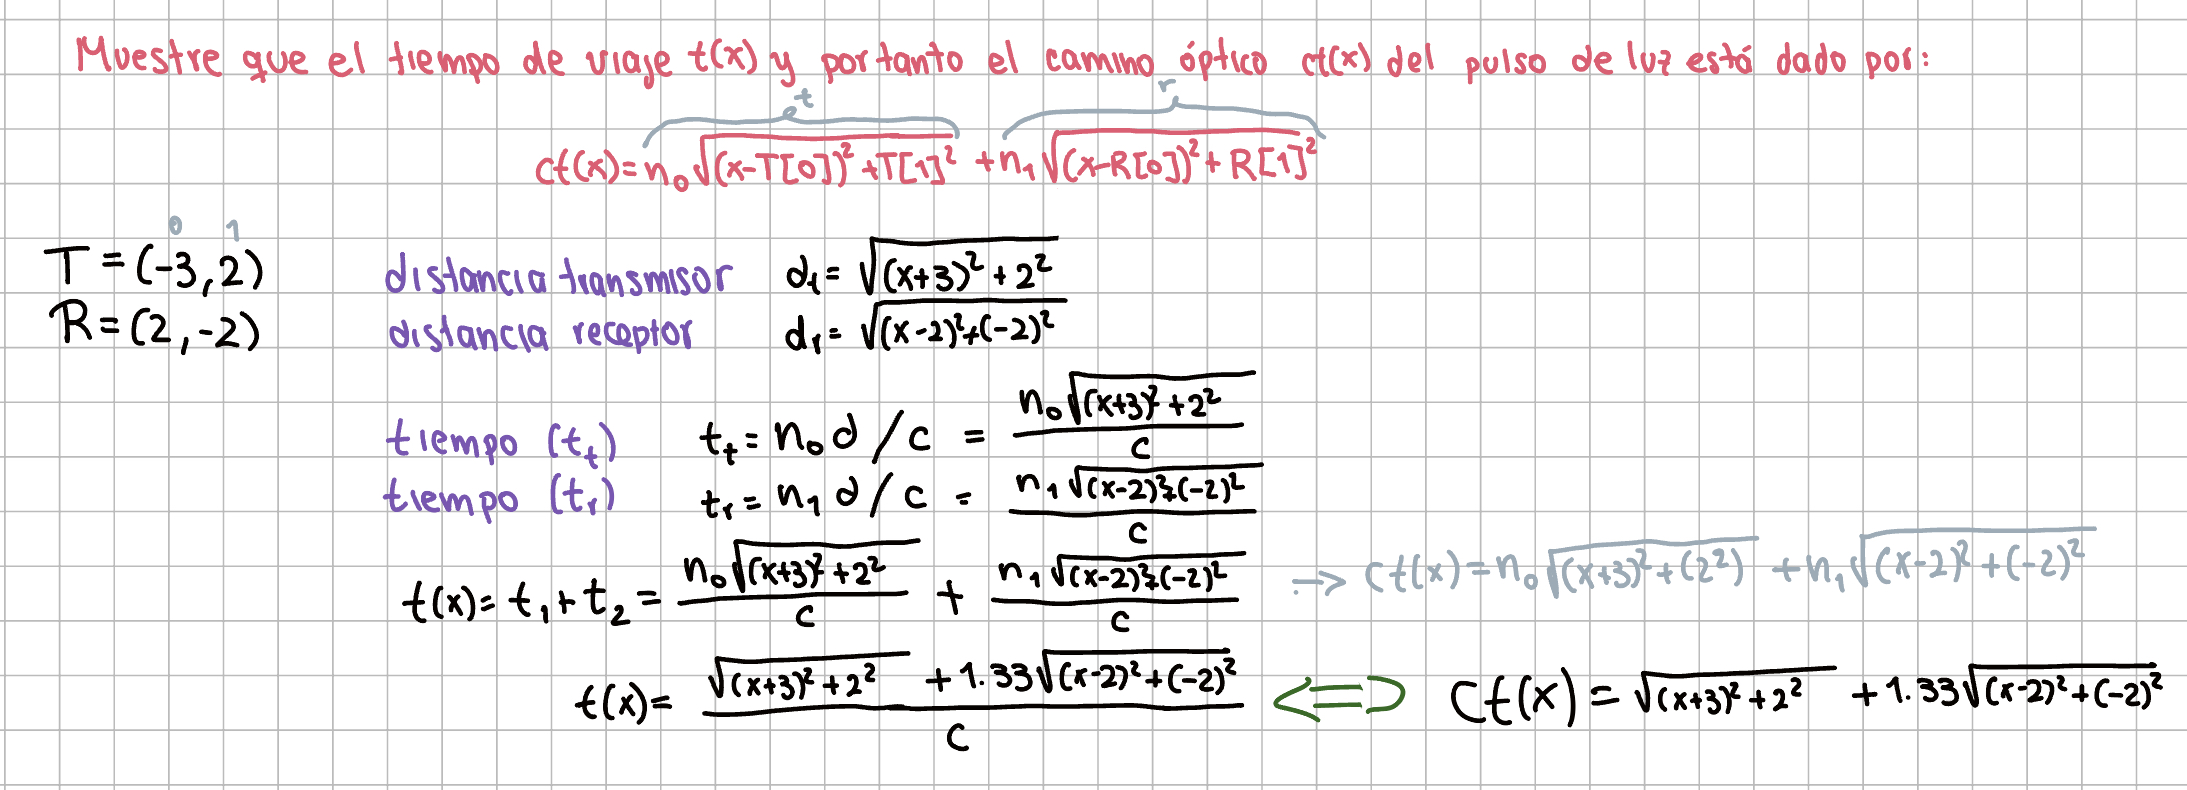 Muestre que el tiempo de viaje t(x) y por tanto el camino óptico ct(x) del pulso de luz está dado por:
t r
ct(x)=n₀√((x-T[0])²+T[1]²) +n₁√((x-R[0])²+R[1]²)
0 1
T=(-3,2)
R=(2,-2)
distancia transmisor dₜ= √((x+3)²+2²)
distancia receptor dᵣ= √((x-2)²+(-2)²)
tiempo (tₜ) tₜ= n₀d/c = n₀√((x+3)²+2²)/c
tiempo (tᵣ) tᵣ= n₁d/c = n₁√((x-2)²+(-2)²)/c
t(x)= t₁+t₂ = n₀√((x+3)²+2²)/c + n₁√((x-2)²+(-2)²)/c → ct(x)=n₀√((x+3)²+(2²)) +n₁√((x-2)²+(-2)²)
t(x)= (√((x+3)²+2²) +1.33√((x-2)²+(-2)²))/c ⟺ ct(x)= √((x+3)²+2²) +1.33√((x-2)²+(-2)²)